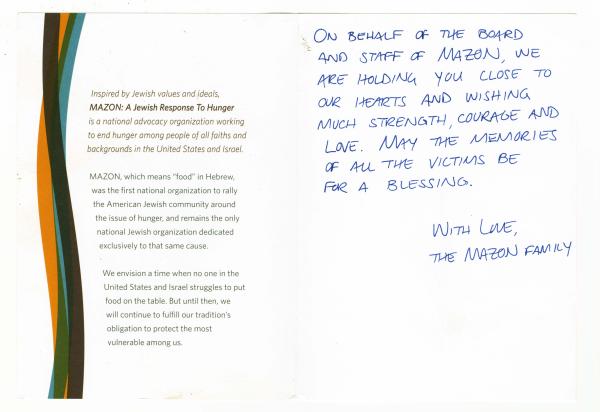 Inspired by Jewish values and ideals,
MAZON: A Jewish Response To Hunger
is a national advocacy organization working
to end hunger among people of all faiths and
backgrounds in the United States and Israel.
MAZON, which means "food" in Hebrew,
was the first national organization to rally
the American Jewish community around
the issue of hunger, and remains the only
national Jewish organization dedicated
exclusively to that same cause.
We envision a time when no one in the
United States and Israel struggles to put
food on the table. But until then, we
will continue to fulfill our tradition's
obligation to protect the most
vulnerable among us.
ON BEHALF OF THE BOARD
AND STAFF OF MAZON, WE
ARE HOLDING YOU CLOSE TO
OUR HEARTS AND WISHING
MUCH STRENGTH, COURAGE AND
LOVE. MAY THE MEMORIES
OF ALL THE VICTIMS BE
FOR A BLESSING.
WITH LOVE,
THE MAZON FAMILY